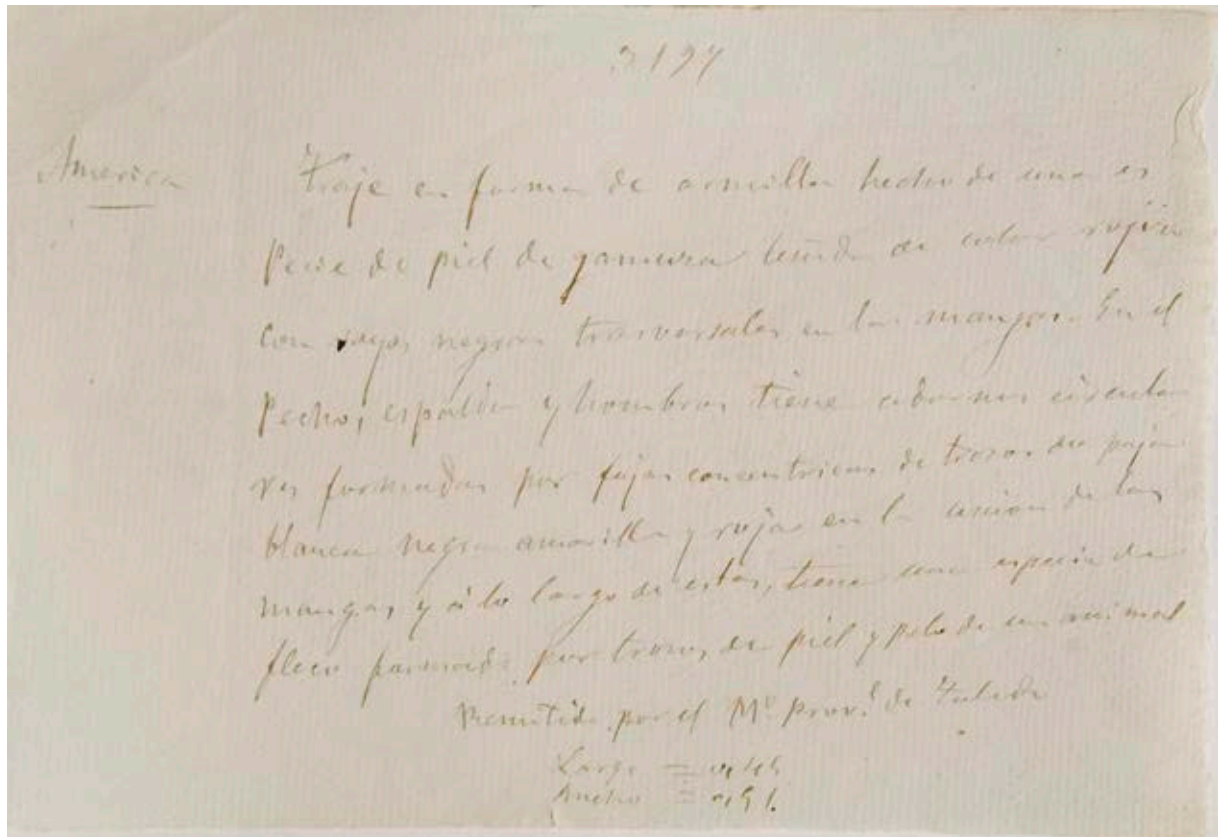 3197
America
Traje en forma de armilla hecho de una es
pecie de piel de gamuza teñida de color rojizo
con rayas negras trasversales en las mangas. En el
pecho, espalda y hombros tiene adornos circula
res formados por fajas concentricas de trozos de paja
blanca negra amarilla y roja en la union de las
mangas y á lo largo de estas, tiene una especie de
fleco formado por trozos de piel y pelo de un animal
Remitido por el Mº. Provl. de Toledo
Largo =
Ancho =